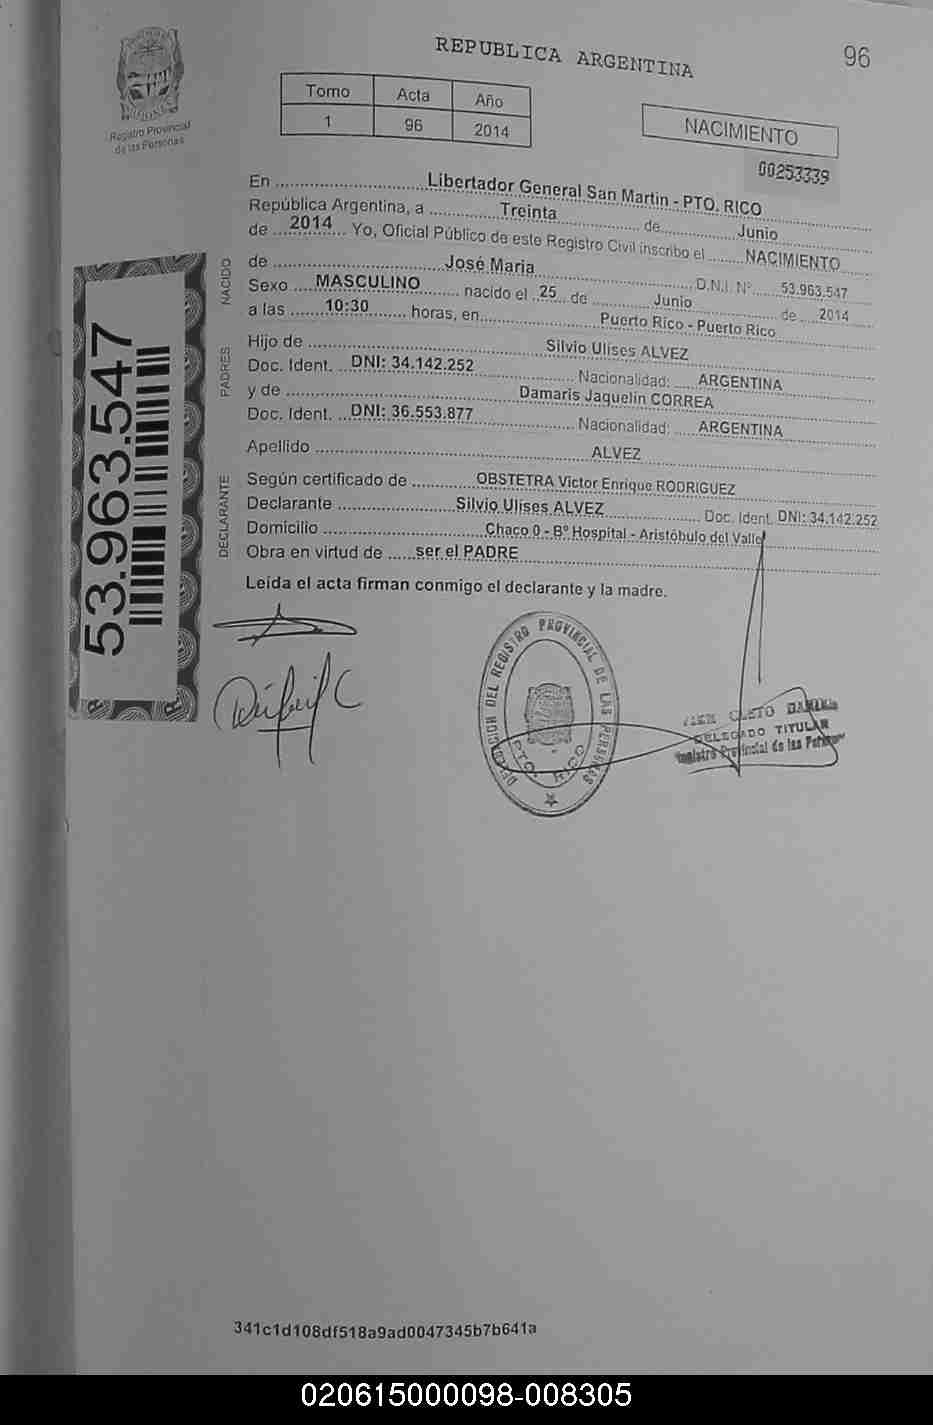 REPUBLICA ARGENTINA
96
Registro Provincial
de las Personas
Tomo Acta Año
1 96 2014
NACIMIENTO
00253339
En ............ Libertador General San Martin - PTO. RICO
República Argentina, a ............ Treinta ............ de ............ Junio
de ... 2014 ... Yo, Oficial Público de este Registro Civil inscribo el ........ NACIMIENTO
NACIDO
de ............ José Maria ............ D.N.I. Nº ...... 53.963.547
Sexo .... MASCULINO ........ nacido el .. 25 .. de ............ Junio ............ de .... 2014
a las ........ 10:30 ........ horas, en ............ Puerto Rico - Puerto Rico
PADRES
Hijo de ............ Silvio Ulises ALVEZ
Doc. Ident. .. DNI: 34.142.252 ............ Nacionalidad: ..... ARGENTINA
y de ............ Damaris Jaquelin CORREA
Doc. Ident. .. DNI: 36.553.877 ............ Nacionalidad: ..... ARGENTINA
Apellido ............ ALVEZ
DECLARANTE
Según certificado de ............ OBSTETRA Victor Enrique RODRIGUEZ
Declarante ............ Silvio Ulises ALVEZ ............ Doc. Ident. DNI: 34.142.252
Domicilio ............ Chaco 0 - Bº Hospital - Aristóbulo del Valle
Obra en virtud de ...... ser el PADRE
Leída el acta firman conmigo el declarante y la madre.
53.963.547
DEL REGISTRO PROVINCIAL DE LAS PERSONAS
PTO. RICO
CLETO
DELEGADO TITULAR
Registro Provincial de las Personas
341c1d108df518a9ad0047345b7b641a
020615000098-008305